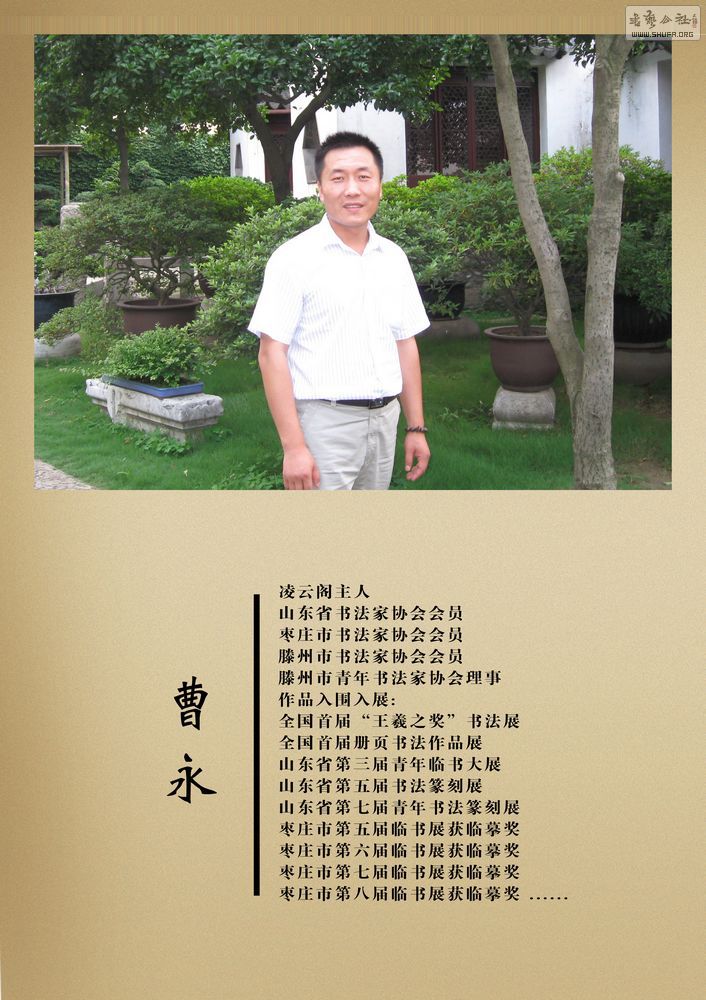 書藝公社
WWW.SHUFA.ORG
曹永
凌云阁主人
山东省书法家协会会员
枣庄市书法家协会会员
滕州市书法家协会会员
滕州市青年书法家协会理事
作品入围入展：
全国首届“王羲之奖”书法展
全国首届册页书法作品展
山东省第三届青年临书大展
山东省第五届书法篆刻展
山东省第七届青年书法篆刻展
枣庄市第五届临书展获临摹奖
枣庄市第六届临书展获临摹奖
枣庄市第七届临书展获临摹奖
枣庄市第八届临书展获临摹奖 ……